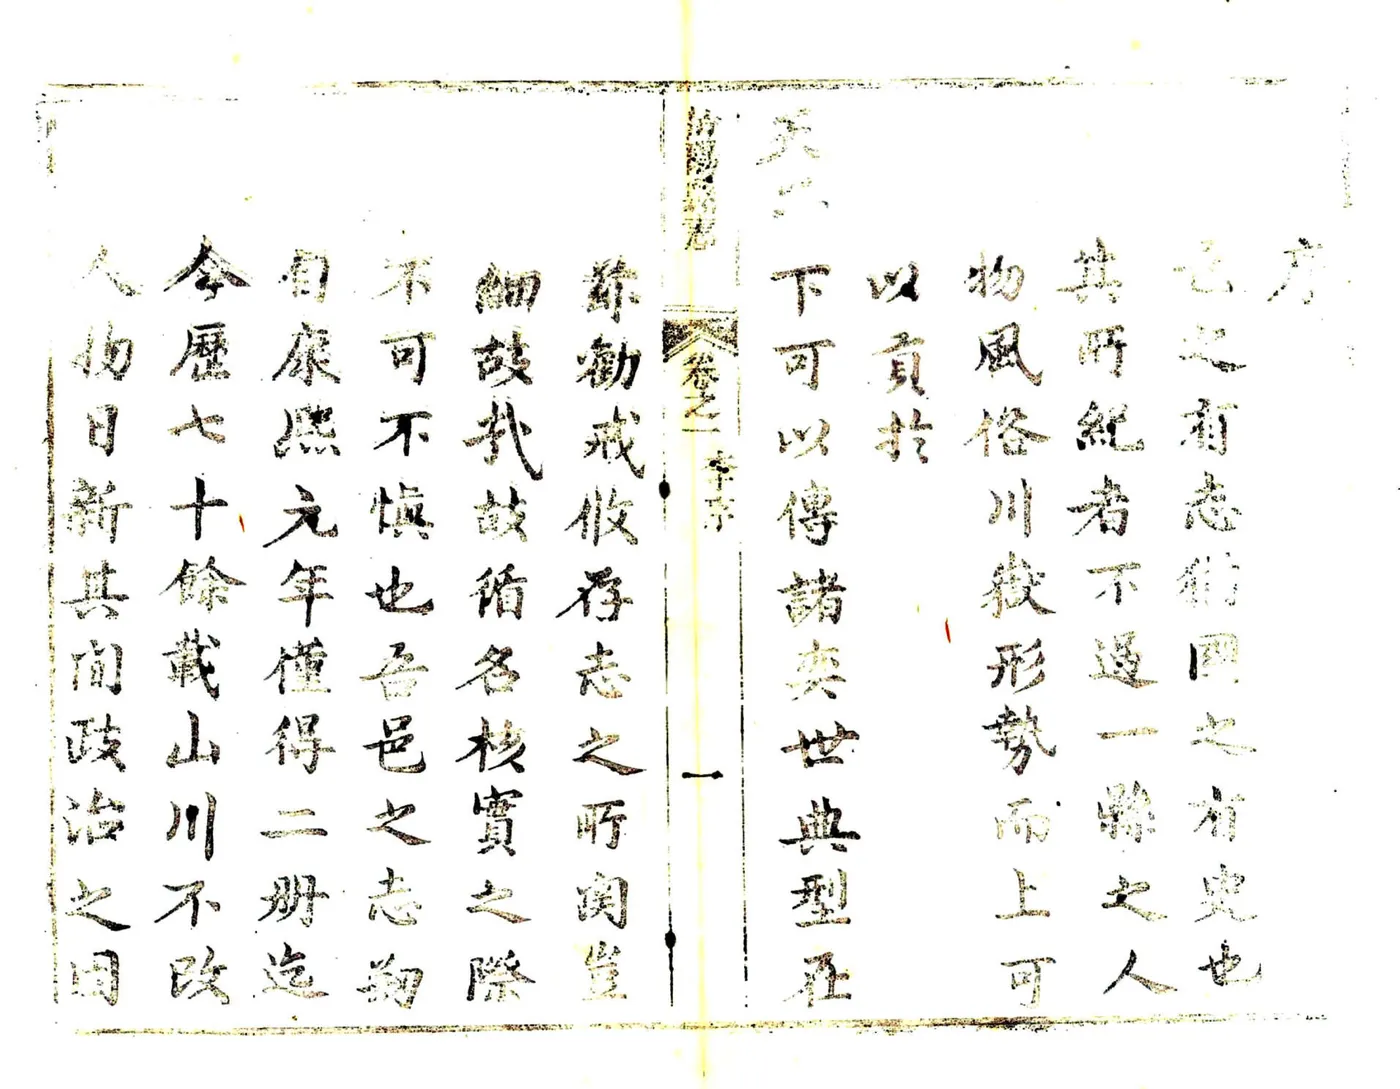 序
邑之有志猶國之有史也
其所紀者不過一縣之人
物風俗川嶽形勢而上可
以貢於
天
下可以傳諸奕世典型在
志 卷之一 序 一
茲勸戒攸存志之所関豈
細故哉故循名核實之際
不可不慎也吾邑之志剏
自康熙元年僅得二册迄
今歷七十餘載山川不改
人物日新其間政治之因